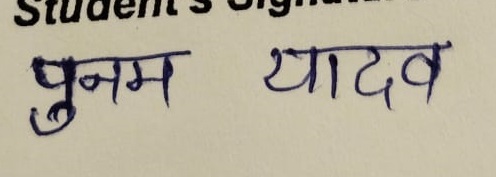 Student's Signature
पुनम यादव